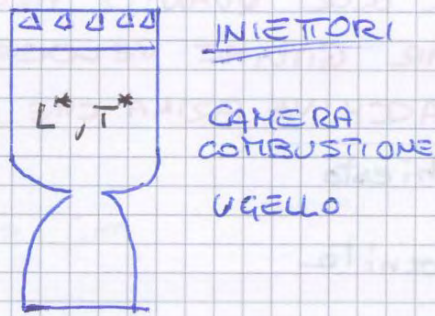 INIETTORI
L*, T*
CAMERA
COMBUSTIONE
UGELLO